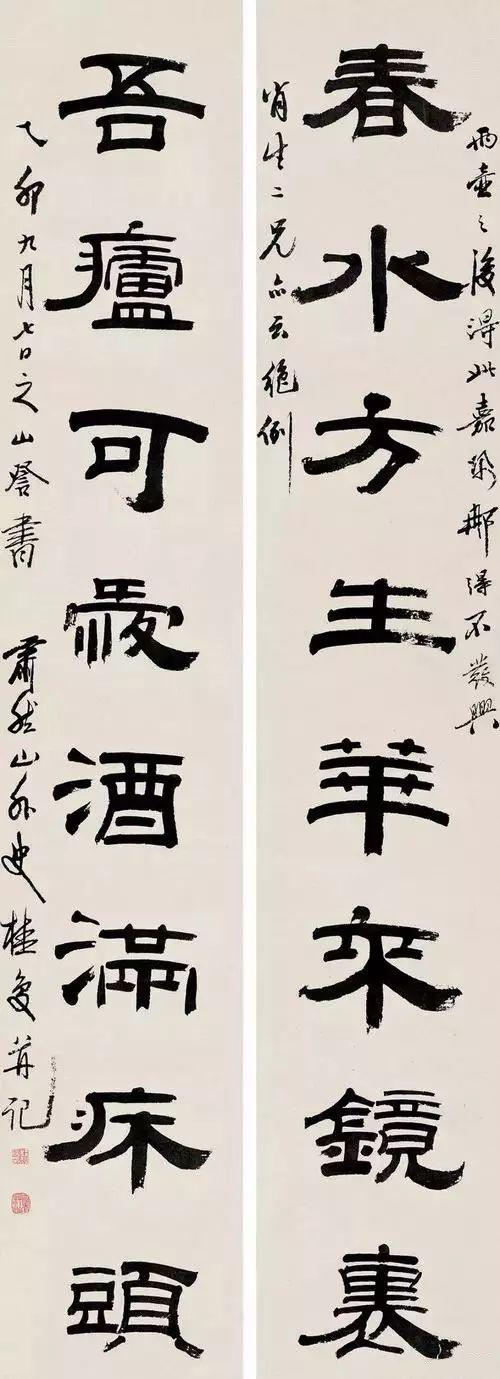 兩壺之後得此嘉 那得不發興
春水方生華來鏡裏
肖生二兄亦云絕倒
吾廬可愛酒滿床頭
乙卯九月七日 山 書 肅然山外史桂复并記